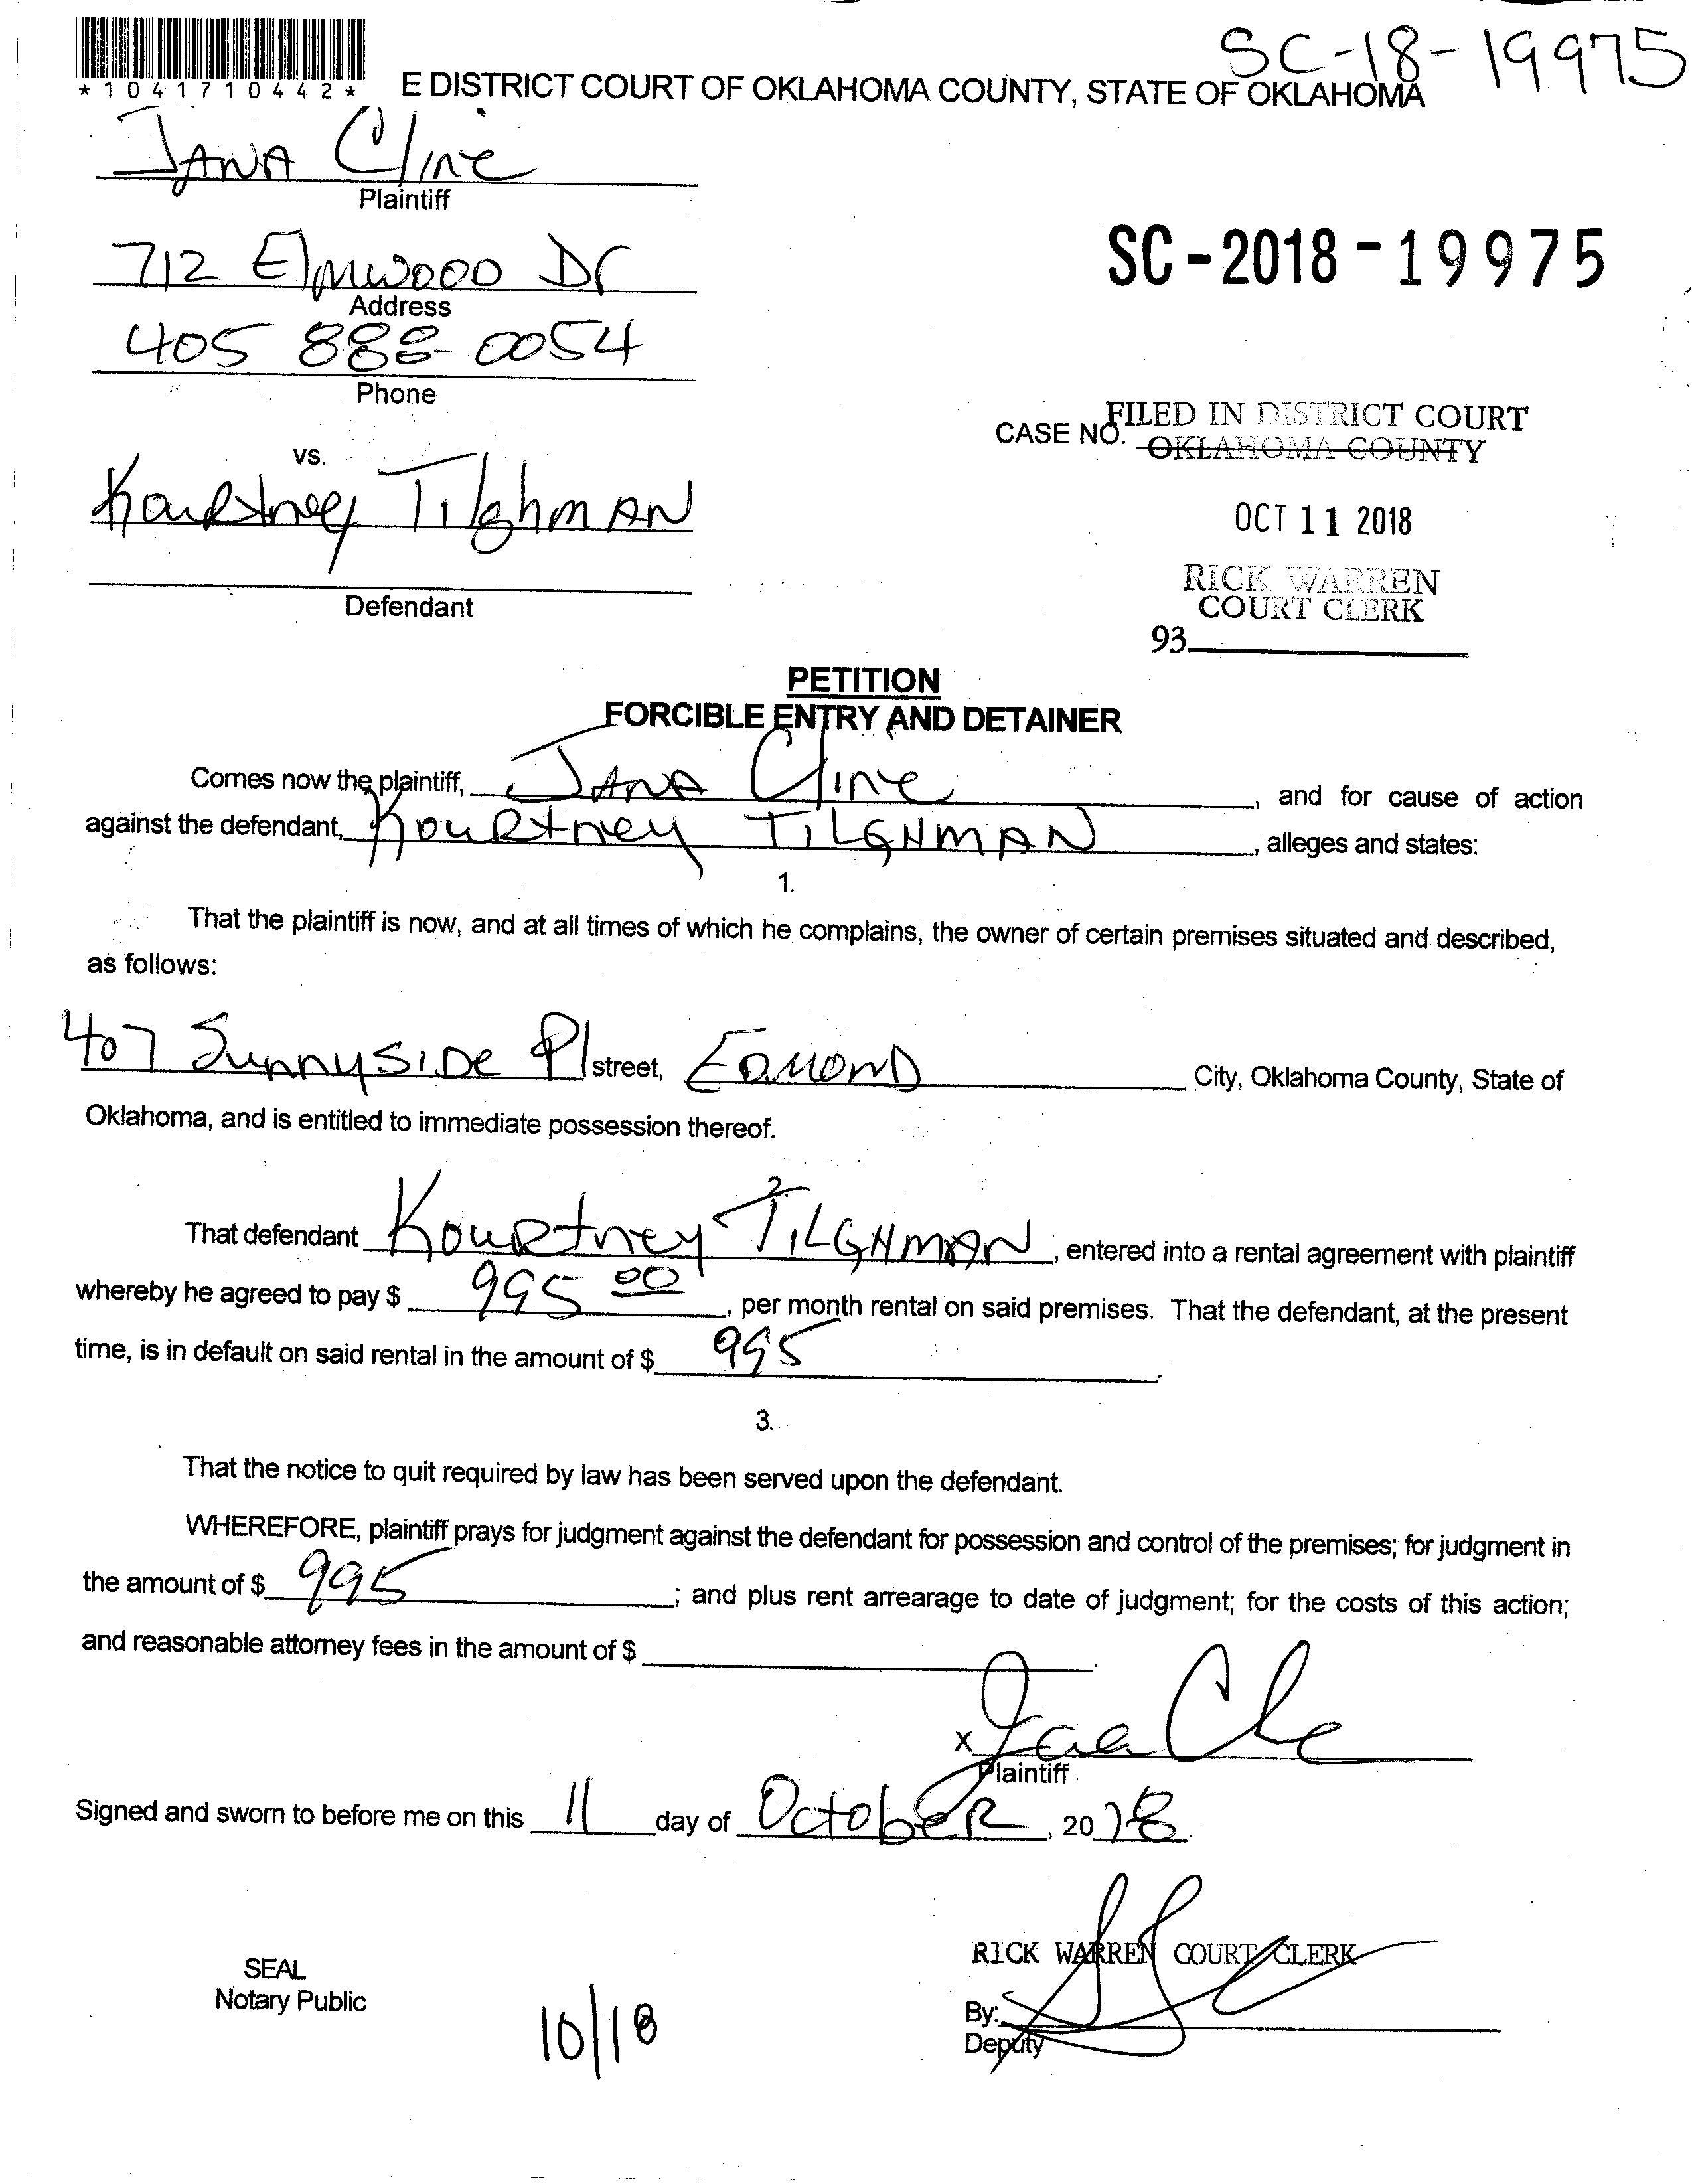 SC-18-19975
*1041710442*
E DISTRICT COURT OF OKLAHOMA COUNTY, STATE OF OKLAHOMA
JANA Cline
Plaintiff
712 Elmwood Dr
Address
SC-2018-19975
405 888-0054
Phone
FILED IN DISTRICT COURT
CASE NO. OKLAHOMA COUNTY
vs.
Kourtney Tilghman
OCT 11 2018
RICK WARREN
COURT CLERK
Defendant
93
PETITION
FORCIBLE ENTRY AND DETAINER
Comes now the plaintiff, JANA Cline, and for cause of action
against the defendant, Kourtney TILGHMAN, alleges and states:
1.
That the plaintiff is now, and at all times of which he complains, the owner of certain premises situated and described,
as follows:
407 Sunnyside Pl street, Edmond City, Oklahoma County, State of
Oklahoma, and is entitled to immediate possession thereof.
2.
That defendant Kourtney TILGHMAN, entered into a rental agreement with plaintiff
whereby he agreed to pay $ 995 00, per month rental on said premises. That the defendant, at the present
time, is in default on said rental in the amount of $ 995.
3.
That the notice to quit required by law has been served upon the defendant.
WHEREFORE, plaintiff prays for judgment against the defendant for possession and control of the premises; for judgment in
the amount of $ 995; and plus rent arrearage to date of judgment; for the costs of this action;
and reasonable attorney fees in the amount of $ .
X
Plaintiff
Signed and sworn to before me on this 11 day of October, 2018.
RICK WARREN COURT CLERK
SEAL
Notary Public
10/18
By:
Deputy